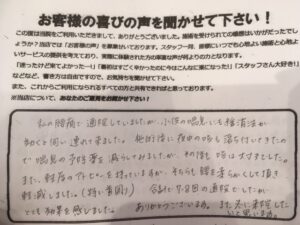 お客様の喜びの声を聞かせて下さい！
この度は当院をご利用いただきまして、ありがとうございました。施術を受けられての感想はいかがだったでしょうか？当店では「お客様の声」を募集いたしております。スタッフ一同、皆様にいつでも心地よい施術と心地よいサービスの提供を考えており、実際に体験された方の率直な声が何よりのたからとなります。
「迷ったけど来てよかった～！」「最初はすごく辛かったのに今はこんなに楽になった！」「スタッフさん大好き！」
などなど、書き方は自由ですので、お気持ちを聞かせて下さい！
また、これからご利用になられるすべての方と共有できればと思っております。
※当店について、あなたのご意見をお聞かせ下さい！
私の腰痛で通院していましたが、小児の喘息にも
効くと伺い連れて来ました。施術後に夜中の咳も落ち付いてきたの
で喘息の予防薬を減らしてみましたが、その後も咳は大丈夫でした。
また、軽度のアトピーを持っていますが、そちらも
軽減しました。（特に首周り） 合計で7.8回の通院でしたが
とても効果を感じました。 ありがとうございます。また次に来院した
いと思います。